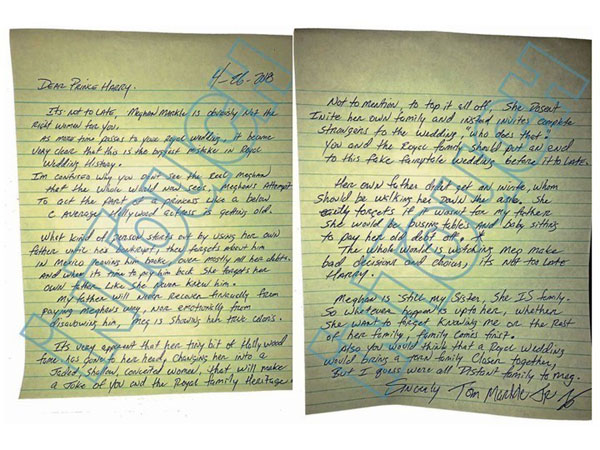 4-26-2018
Dear Prince Harry,
Its not to late, Meghan Markle is obviously Not the
Right woman for you.
As more time passes to your royal wedding, it became
very clear that this is the biggest mistake in Royal
Wedding History.
I'm confused why you don't see the Real Meghan
that the whole world now sees. Meghan's attempt
to act the part of a princess like a below
C Average Hollywood actress is getting old.
What kind of person starts out by using her own
father until he's bankrupt, then forgets about him
in Mexico leaving him broke, over mostly all her debts.
And when its time to pay him back she forgets her
own father like she never knew him.
My father will never recover financially from
paying Meghan's way, nor emotionally from
disavowing him. Meg is showing her true colors.
Its very apparent that her tiny bit of Hollywood
fame has gone to her head. Changing her into a
Jaded, shallow, conceited woman, that will make
a Joke of you and the Royal family Heritage.
Not to mention, to top it all off, She Doesnt
Invite her own family and instead invites complete
strangers to the wedding. "who does that"
You and the Royal family should put an end
to this fake fairytale wedding before it to late.
Her own father didnt get an invite, whom
should be walking her down the aisle. She
forgets if it wasnt for my father
She would be busing tables and baby sitting
to pay her old debt off.
The whole World is watching Meg make
bad decisions and choices, its not too late
Harry.
Meghan is still my Sister, She IS family.
So whatever happens is up to her, whether
She want to forget knowing me or the Rest
of her family, family comes first.
Also you would think that a Royal Wedding
would bring a torn family closer together,
But I guess we're all Distant family to Meg.
Sincerly Tom Markle Jr